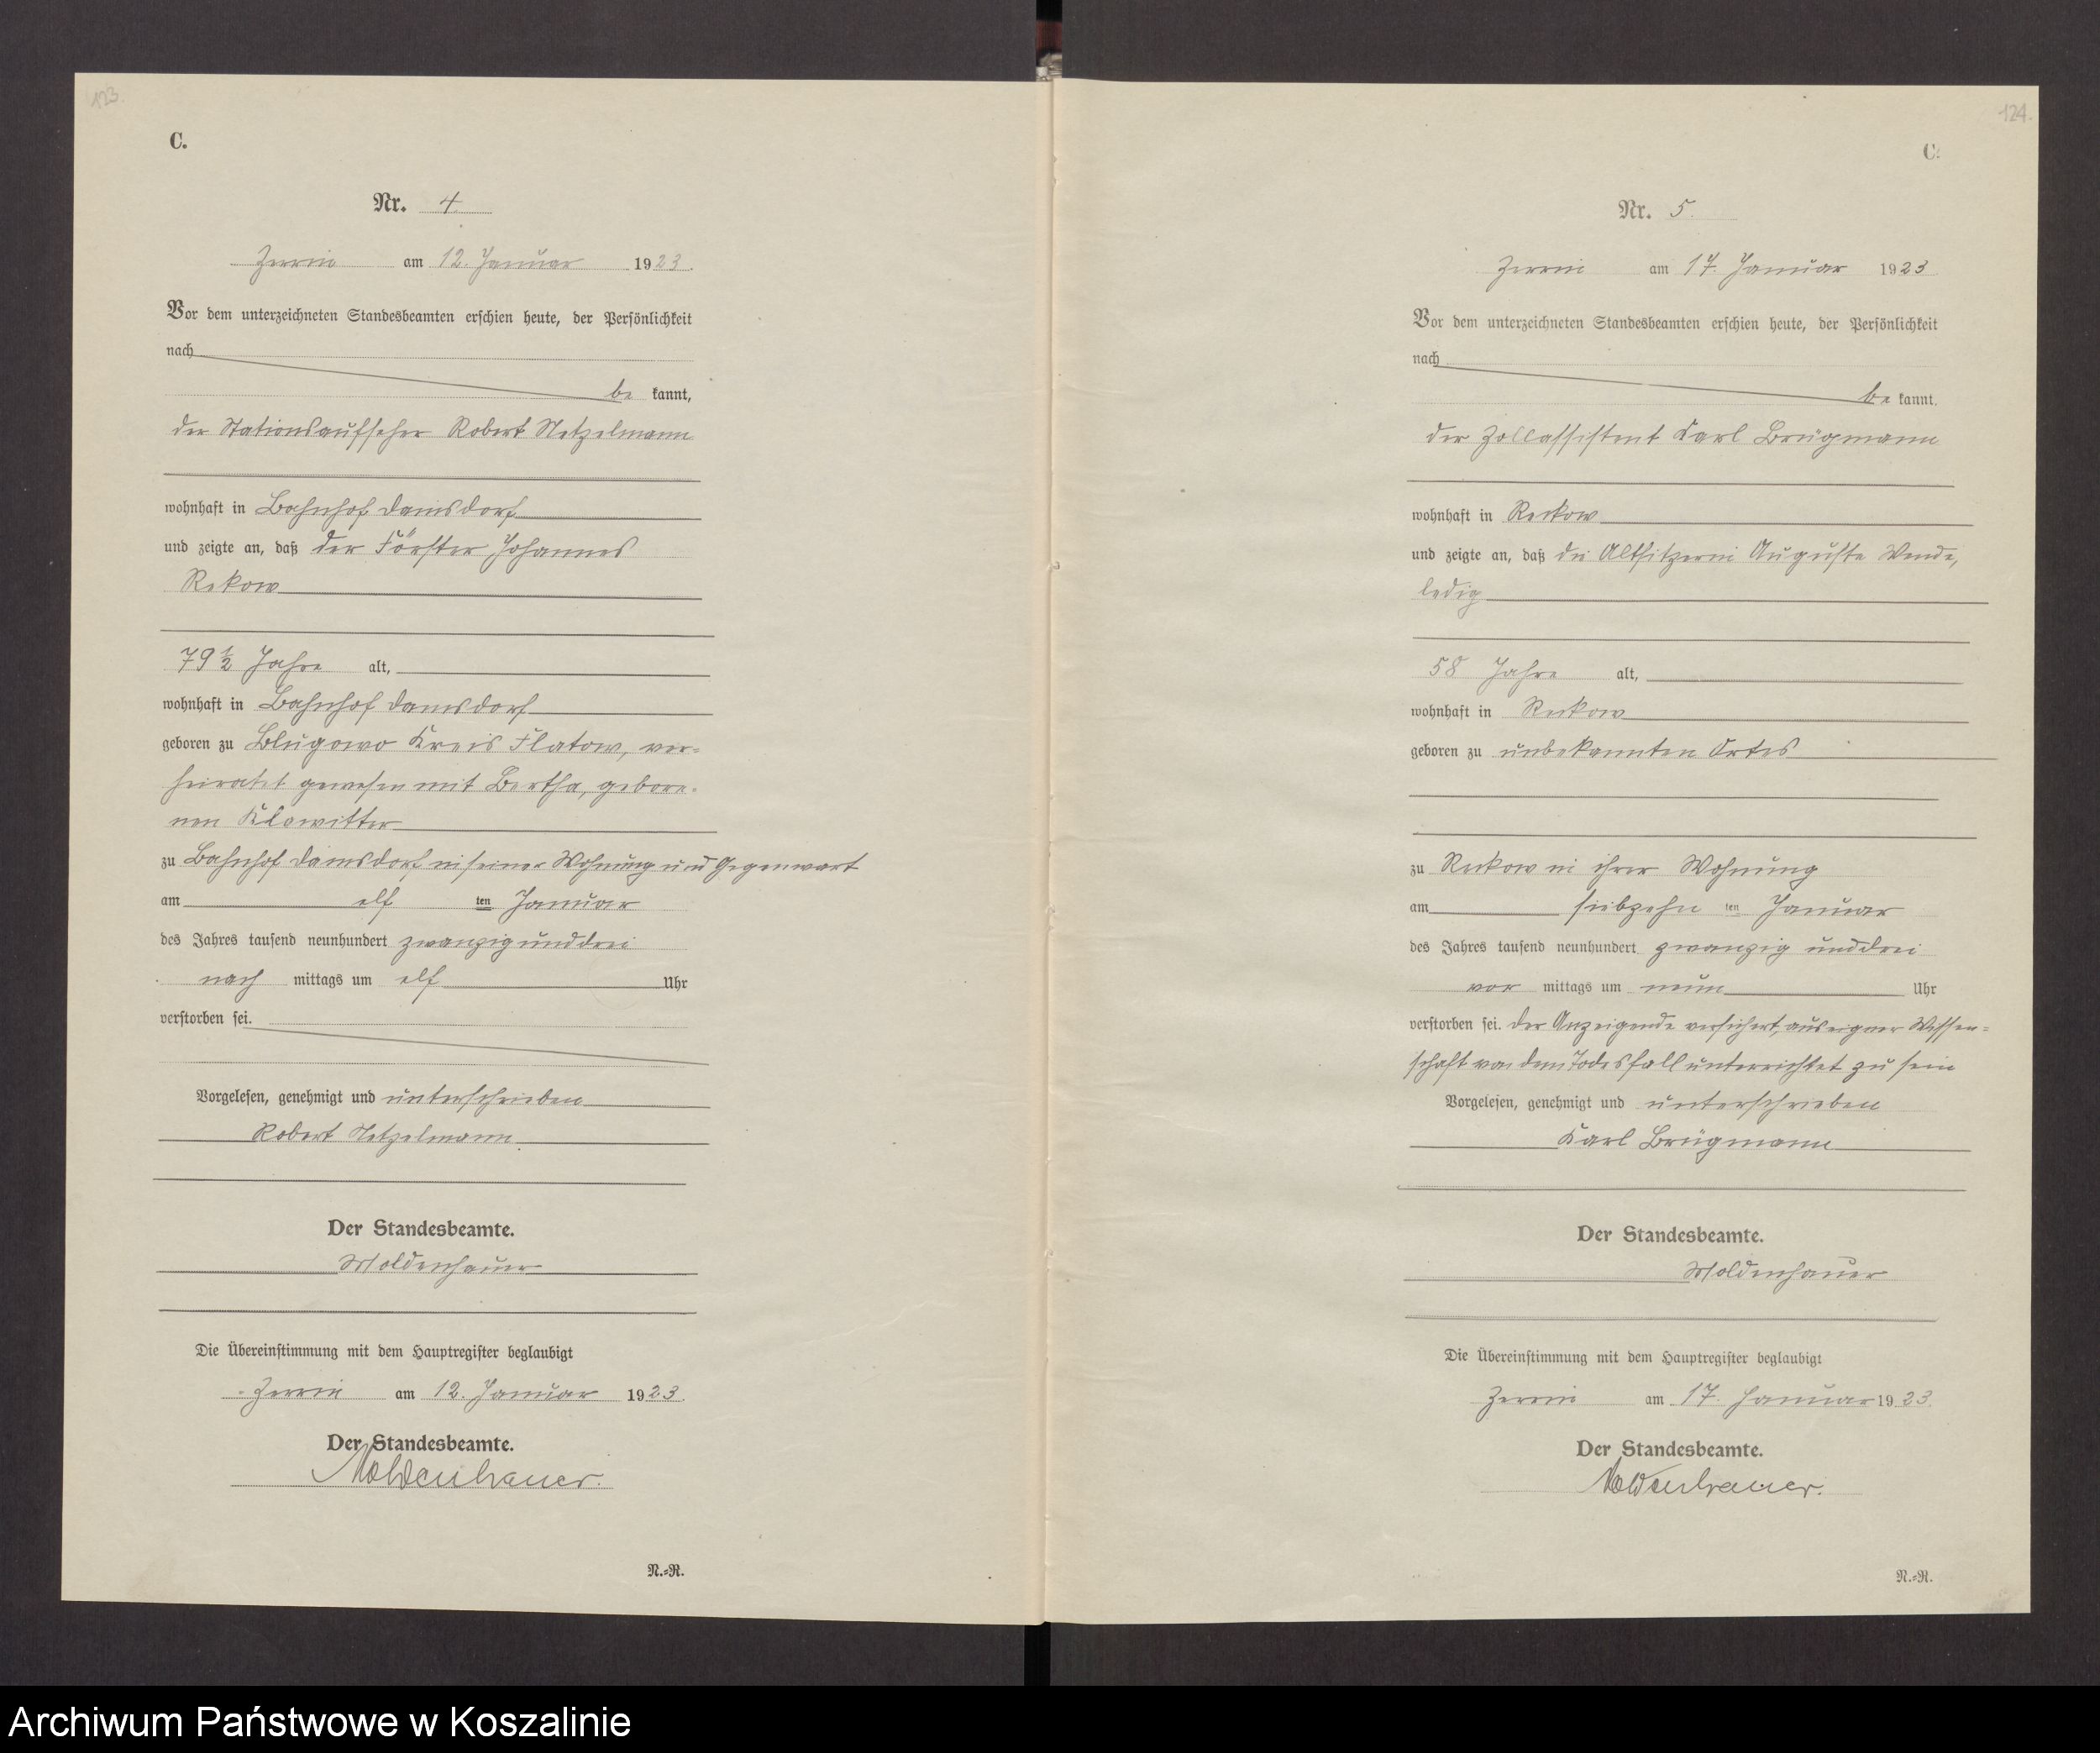 123.
C.
Nr. 4.
Zerrin am 12. Januar 1923.
Vor dem unterzeichneten Standesbeamten erschien heute, der Persönlichkeit
nach
be kannt,
der Stationsaufseher Robert Netzelmann
wohnhaft in Bahnhof Damsdorf
und zeigte an, daß der Förster Johannes
Rekow
79 1/2 Jahre alt,
wohnhaft in Bahnhof Damsdorf
geboren zu Blugowo Kreis Flatow, ver=
heiratet gewesen mit Bertha, gebore=
nen Klawitter
zu Bahnhof Damsdorf in seiner Wohnung und Gegenwart
am elf ten Januar
des Jahres tausend neunhundert zwanzigunddrei
nach mittags um elf Uhr
verstorben sei.
Vorgelesen, genehmigt und unterschrieben
Robert Netzelmann
Der Standesbeamte.
Moldenhauer
Die Übereinstimmung mit dem Hauptregister beglaubigt
Zerrin am 12. Januar 1923.
Der Standesbeamte.
Moldenhauer.
N.=R.
124.
C.
Nr. 5.
Zerrin am 17. Januar 1923
Vor dem unterzeichneten Standesbeamten erschien heute, der Persönlichkeit
nach
be kannt.
der Zollassistent Karl Brügmann
wohnhaft in Reckow
und zeigte an, daß die Altsitzerin Auguste Wende,
ledig
58 Jahre alt,
wohnhaft in Reckow
geboren zu unbekannten Ortes
zu Reckow in ihrer Wohnung
am siebzehn ten Januar
des Jahres tausend neunhundert zwanzig unddrei
vor mittags um neun Uhr
verstorben sei. Der Anzeigende versichert, aus eigner Wissen=
schaft von dem Todesfall unterrichtet zu sein
Vorgelesen, genehmigt und unterschrieben
Karl Brügmann
Der Standesbeamte.
Moldenhauer
Die Übereinstimmung mit dem Hauptregister beglaubigt
Zerrin am 17. Januar 1923.
Der Standesbeamte.
Moldenhauer.
N.=R.
Archiwum Państwowe w Koszalinie